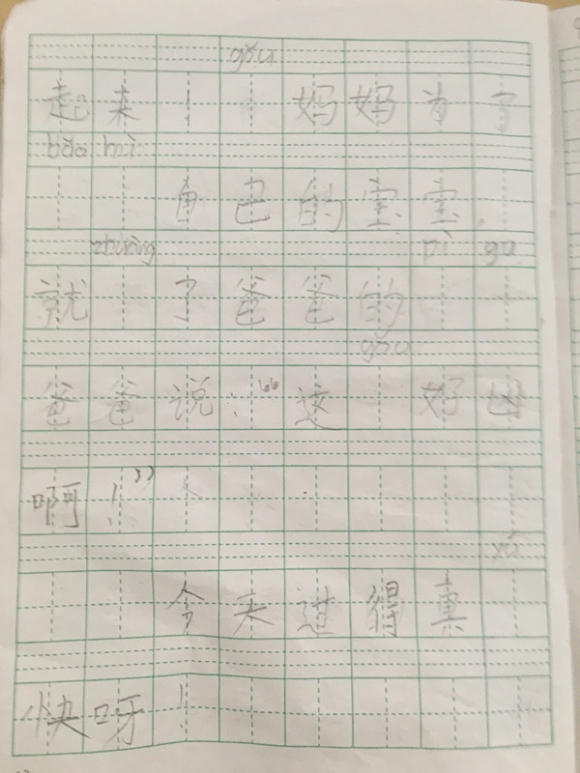 gǒu
起来！ 妈妈为了
bǎo
自己的宝宝，
zhuàng pì gu
就 了爸爸的
gǒu
爸爸说：“这 好凶
啊！”
今天过得真
快呀！